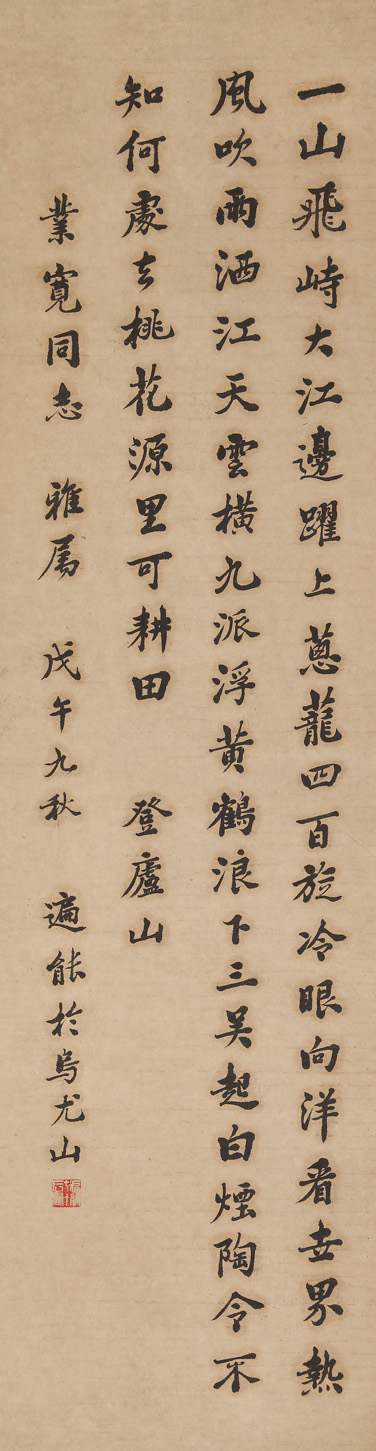 一山飛峙大江邊躍上蔥蘢四百旋冷眼向洋看世界熱
風吹雨洒江天雲橫九派浮黄鶴浪下三吴起白煙陶令不
知何處去桃花源里可耕田 登廬山
業寬同志 雅属 戊午九秋 遍能於烏尤山